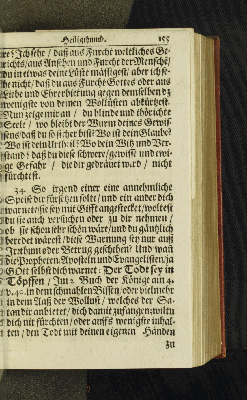 Heiligthumb. 155
re? Ich sehe / daß aus Furcht weltliches Ge-
richts / aus Ansehen und Furcht der Mensche /
du in etwas deine Lüste mässigest / aber ich se-
he nicht / daß du aus Furcht Gottes oder aus
Liebe und Ehrerbietung gegen demselben dz
wenigste von deinen Wollüsten abkürtzest.
Nun zeige mir an / du blinde und thörichte
Seele / wo bleibt der Wurm deines Gewis-
sens / daß du so sicher bist? Wo ist dein Glaube?
Wo ist dein Urtheil? Wo dein Witz und Ver-
stand? daß du diese schwere / gewisse und ewi-
ge Gefahr / die dir gedräuet wird / nicht
fürchtest.
34. So irgend einer eine annehmliche
Speiß dir fürsetzen solte / und ein ander dich
warnet / sie sey mit Gifft angestecket / woltest
du sie auch versuchen oder zu dir nehmen /
ob sie schon sehr schön wäre / und du gäntzlich
beredet wärest / diese Warnung sey nur aus
Irrthum oder Betrug geschehen? Und wañ
die Propheten / Aposteln und Evangelisten / ja
GOtt selbst dich warnet: Der Todt sey in
Töpffen / Im 2. Buch der Könige am 4.
v. 40. in dem schmahlen Bissen / oder vielmehr
in dem Aaß der Wollust / welches der Sa-
tan dir anbietet / dich damit zufangen; wiltu
dich nit fürchten / oder auffs wenigste inhal-
ten / den Todt mit deinen eigenen Händen
zu